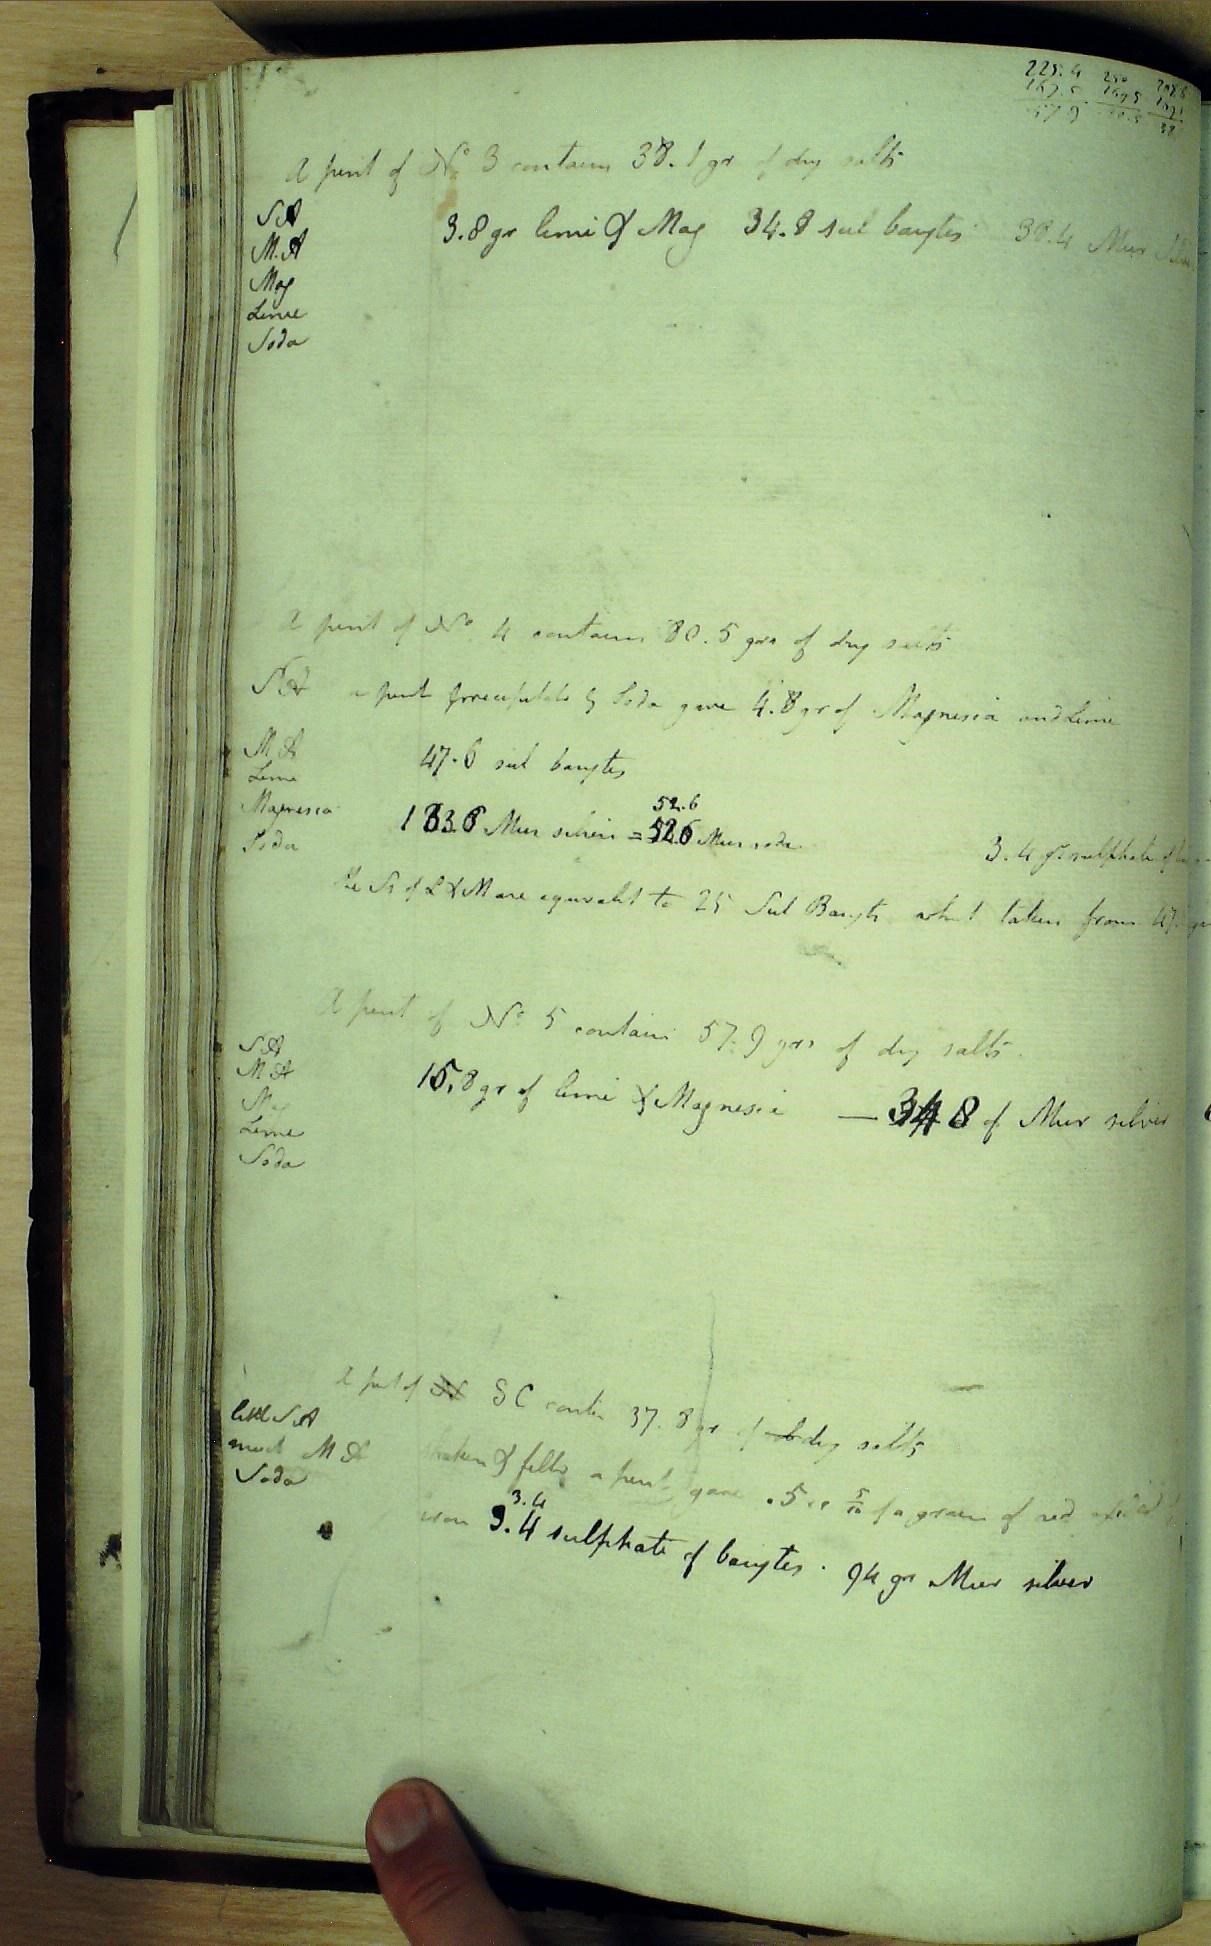 225.4 250 208.6
167.5 167.5 1
57.9 38
A pint of No 3 contains 38.1 gr of dry salts
SA
3.8 gr lime & Mag 34.8 sul barytes 38.4 Mur
M.A
Mag
Lime
Soda
A pint of No. 4 contains 80.5 grs of dry salts
SA a pint precipitated by Soda gave 4.8 gr of Magnesia and Lime
M A 47.6 sul barytes
Lime
52.6
Magnesia 133.6 Mur silver = 52.6 Mur soda
Soda 3.4 gr sulphate of
the Ss of L & M are equivalent to 25 Sul Baryts which taken from 47
A pint of No 5 contains 57.9 grs of dry salts.
SA
M A 15.8 gr of lime & Magnesia — 8 of Mur silver
Mag
Lime
Soda
A pint of N SC contn 37.8 gr of dry salts
little SA
much M A & filtd a pint gave .5 or 5/10 of a grain of red oxide
Soda
3.4
iron 3.4 sulphate of barytes. 94 grs Mur silver